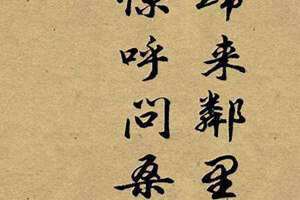 来鄰里
呼问桑